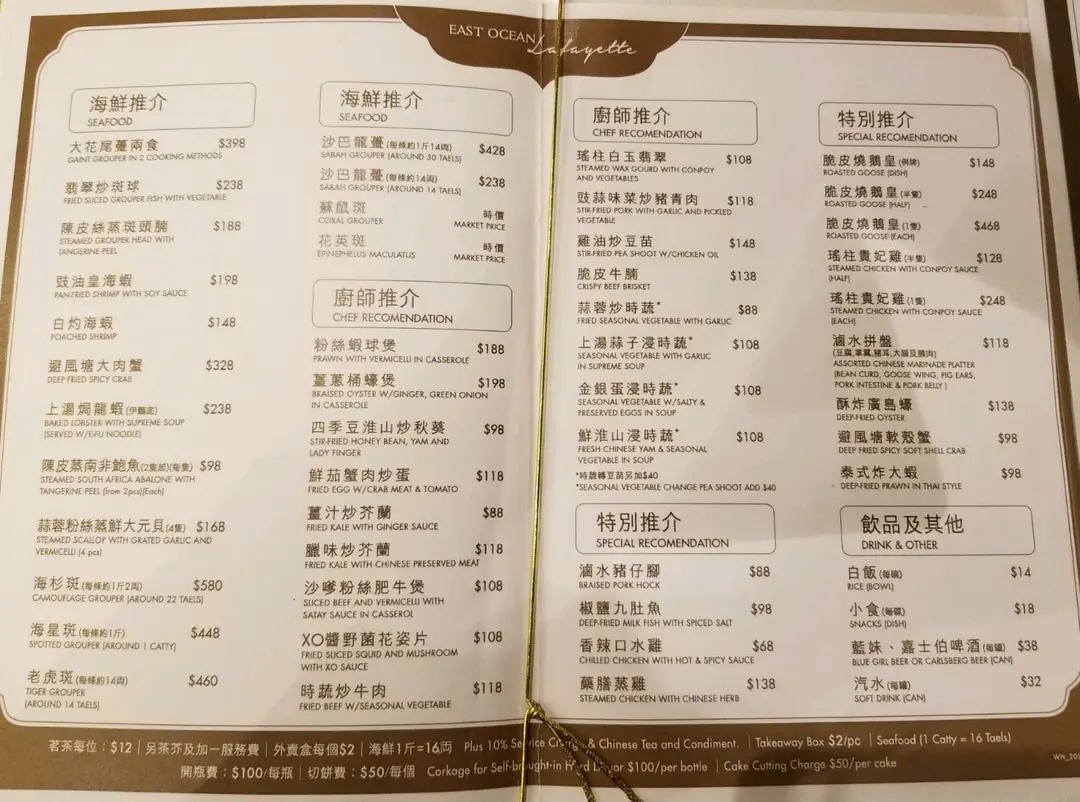 EAST OCEAN
Lafayette
海鮮推介
SEAFOOD
大花尾躉兩食 $398
GAINT GROUPER IN 2 COOKING METHODS
翡翠炒斑球 $238
FRIED SLICED GROUPER FISH WITH VEGETABLE
陳皮絲蒸斑頭腩 $188
STEAMED GROUPER HEAD WITH
TANGERINE PEEL
豉油皇海蝦 $198
PAN-FRIED SHRIMP WITH SOY SAUCE
白灼海蝦 $148
POACHED SHRIMP
避風塘大肉蟹 $328
DEEP FRIED SPICY CRAB
上湯焗龍蝦(伊麵底) $238
BAKED LOBSTER WITH SUPREME SOUP
(SERVED W/E-FU NOODLE)
陳皮蒸南非鮑魚(2隻起)(每隻) $98
STEAMED SOUTH AFRICA ABALONE WITH
TANGERINE PEEL (from 2pcs)(Each)
蒜蓉粉絲蒸鮮大元貝(4隻) $168
STEAMED SCALLOP WITH GRATED GARLIC AND
VERMICELLI (4 pcs)
海杉斑(每條約1斤2両) $580
CAMOUFLAGE GROUPER (AROUND 22 TAELS)
海星斑(每條約1斤) $448
SPOTTED GROUPER (AROUND 1 CATTY)
老虎斑(每條約14両) $460
TIGER GROUPER
(AROUND 14 TAELS)
海鮮推介
SEAFOOD
沙巴龍躉(每條約1斤14両) $428
SABAH GROUPER (AROUND 30 TAELS)
沙巴龍躉(每條約14両) $238
SABAH GROUPER (AROUND 14 TAELS)
蘇鼠斑 時價
CORAL GROUPER MARKET PRICE
花英斑 時價
EPINEPHELUS MACULATUS MARKET PRICE
廚師推介
CHEF RECOMENDATION
粉絲蝦球煲 $188
PRAWN WITH VERMICELLI IN CASSEROLE
薑蔥桶蠔煲 $198
BRAISED OYSTER W/GINGER, GREEN ONION
IN CASSEROLE
四季豆淮山炒秋葵 $98
STIR-FRIED HONEY BEAN, YAM AND
LADY FINGER
鮮茄蟹肉炒蛋 $118
FRIED EGG W/CRAB MEAT & TOMATO
薑汁炒芥蘭 $88
FRIED KALE WITH GINGER SAUCE
臘味炒芥蘭 $118
FRIED KALE WITH CHINESE PRESERVED MEAT
沙嗲粉絲肥牛煲 $108
SLICED BEEF AND VERMICELLI WITH
SATAY SAUCE IN CASSEROL
XO醬野菌花姿片 $108
FRIED SLICED SQUID AND MUSHROOM
WITH XO SAUCE
時蔬炒牛肉 $118
FRIED BEEF W/SEASONAL VEGETABLE
廚師推介
CHEF RECOMENDATION
瑤柱白玉翡翠 $108
STEAMED WAX GOURD WITH CONPOY
AND VEGETABLES
豉蒜味菜炒豬青肉 $118
STIR-FRIED PORK WITH GARLIC AND PICKLED
VEGETABLE
雞油炒豆苗 $148
STIR-FRIED PEA SHOOT W/CHICKEN OIL
脆皮牛腩 $138
CRISPY BEEF BRISKET
蒜蓉炒時蔬* $88
FRIED SEASONAL VEGETABLE WITH GARLIC
上湯蒜子浸時蔬* $108
SEASONAL VEGETABLE WITH GARLIC
IN SUPREME SOUP
金銀蛋浸時蔬* $108
SEASONAL VEGETABLE W/SALTY &
PRESERVED EGGS IN SOUP
鮮淮山浸時蔬* $108
FRESH CHINESE YAM & SEASONAL
VEGETABLE IN SOUP
*時蔬轉豆苗另加$40
*SEASONAL VEGETABLE CHANGE PEA SHOOT ADD $40
特別推介
SPECIAL RECOMENDATION
滷水豬仔腳 $88
BRAISED PORK HOCK
椒鹽九肚魚 $98
DEEP-FRIED MILK FISH WITH SPICED SALT
香辣口水雞 $68
CHILLED CHICKEN WITH HOT & SPICY SAUCE
藥膳蒸雞 $138
STEAMED CHICKEN WITH CHINESE HERB
特別推介
SPECIAL RECOMENDATION
脆皮燒鵝皇(例牌) $148
ROASTED GOOSE (DISH)
脆皮燒鵝皇(半隻) $248
ROASTED GOOSE (HALF)
脆皮燒鵝皇(1隻) $468
ROASTED GOOSE (EACH)
瑤柱貴妃雞(半隻) $128
STEAMED CHICKEN WITH CONPOY SAUCE
(HALF)
瑤柱貴妃雞(1隻) $248
STEAMED CHICKEN WITH CONPOY SAUCE
(EACH)
滷水拼盤 $118
(豆腐,掌翼,豬耳,大腸及腩肉)
ASSORTED CHINESE MARINADE PLATTER
(BEAN CURD, GOOSE WING, PIG EARS,
PORK INTESTINE & PORK BELLY )
酥炸廣島蠔 $138
DEEP-FRIED OYSTER
避風塘軟殼蟹 $98
DEEP FRIED SPICY SOFT SHELL CRAB
泰式炸大蝦 $98
DEEP-FRIED PRAWN IN THAI STYLE
飲品及其他
DRINK & OTHER
白飯(每碗) $14
RICE (BOWL)
小食(每碟) $18
SNACKS (DISH)
藍妹、嘉士伯啤酒(每罐) $38
BLUE GIRL BEER OR CARLSBERG BEER (CAN)
汽水(每罐) $32
SOFT DRINK (CAN)
茗茶每位：$12｜另茶芥及加一服務費｜外賣盒每個$2｜海鮮1斤=16両 Plus 10% Service Charge & Chinese Tea and Condiment.｜Takeaway Box $2/pc｜Seafood (1 Catty = 16 Taels)
開瓶費：$100/每瓶｜切餅費：$50/每個 Corkage for Self-brought-in Hard Liquor $100/per bottle｜Cake Cutting Charge $50/per cake